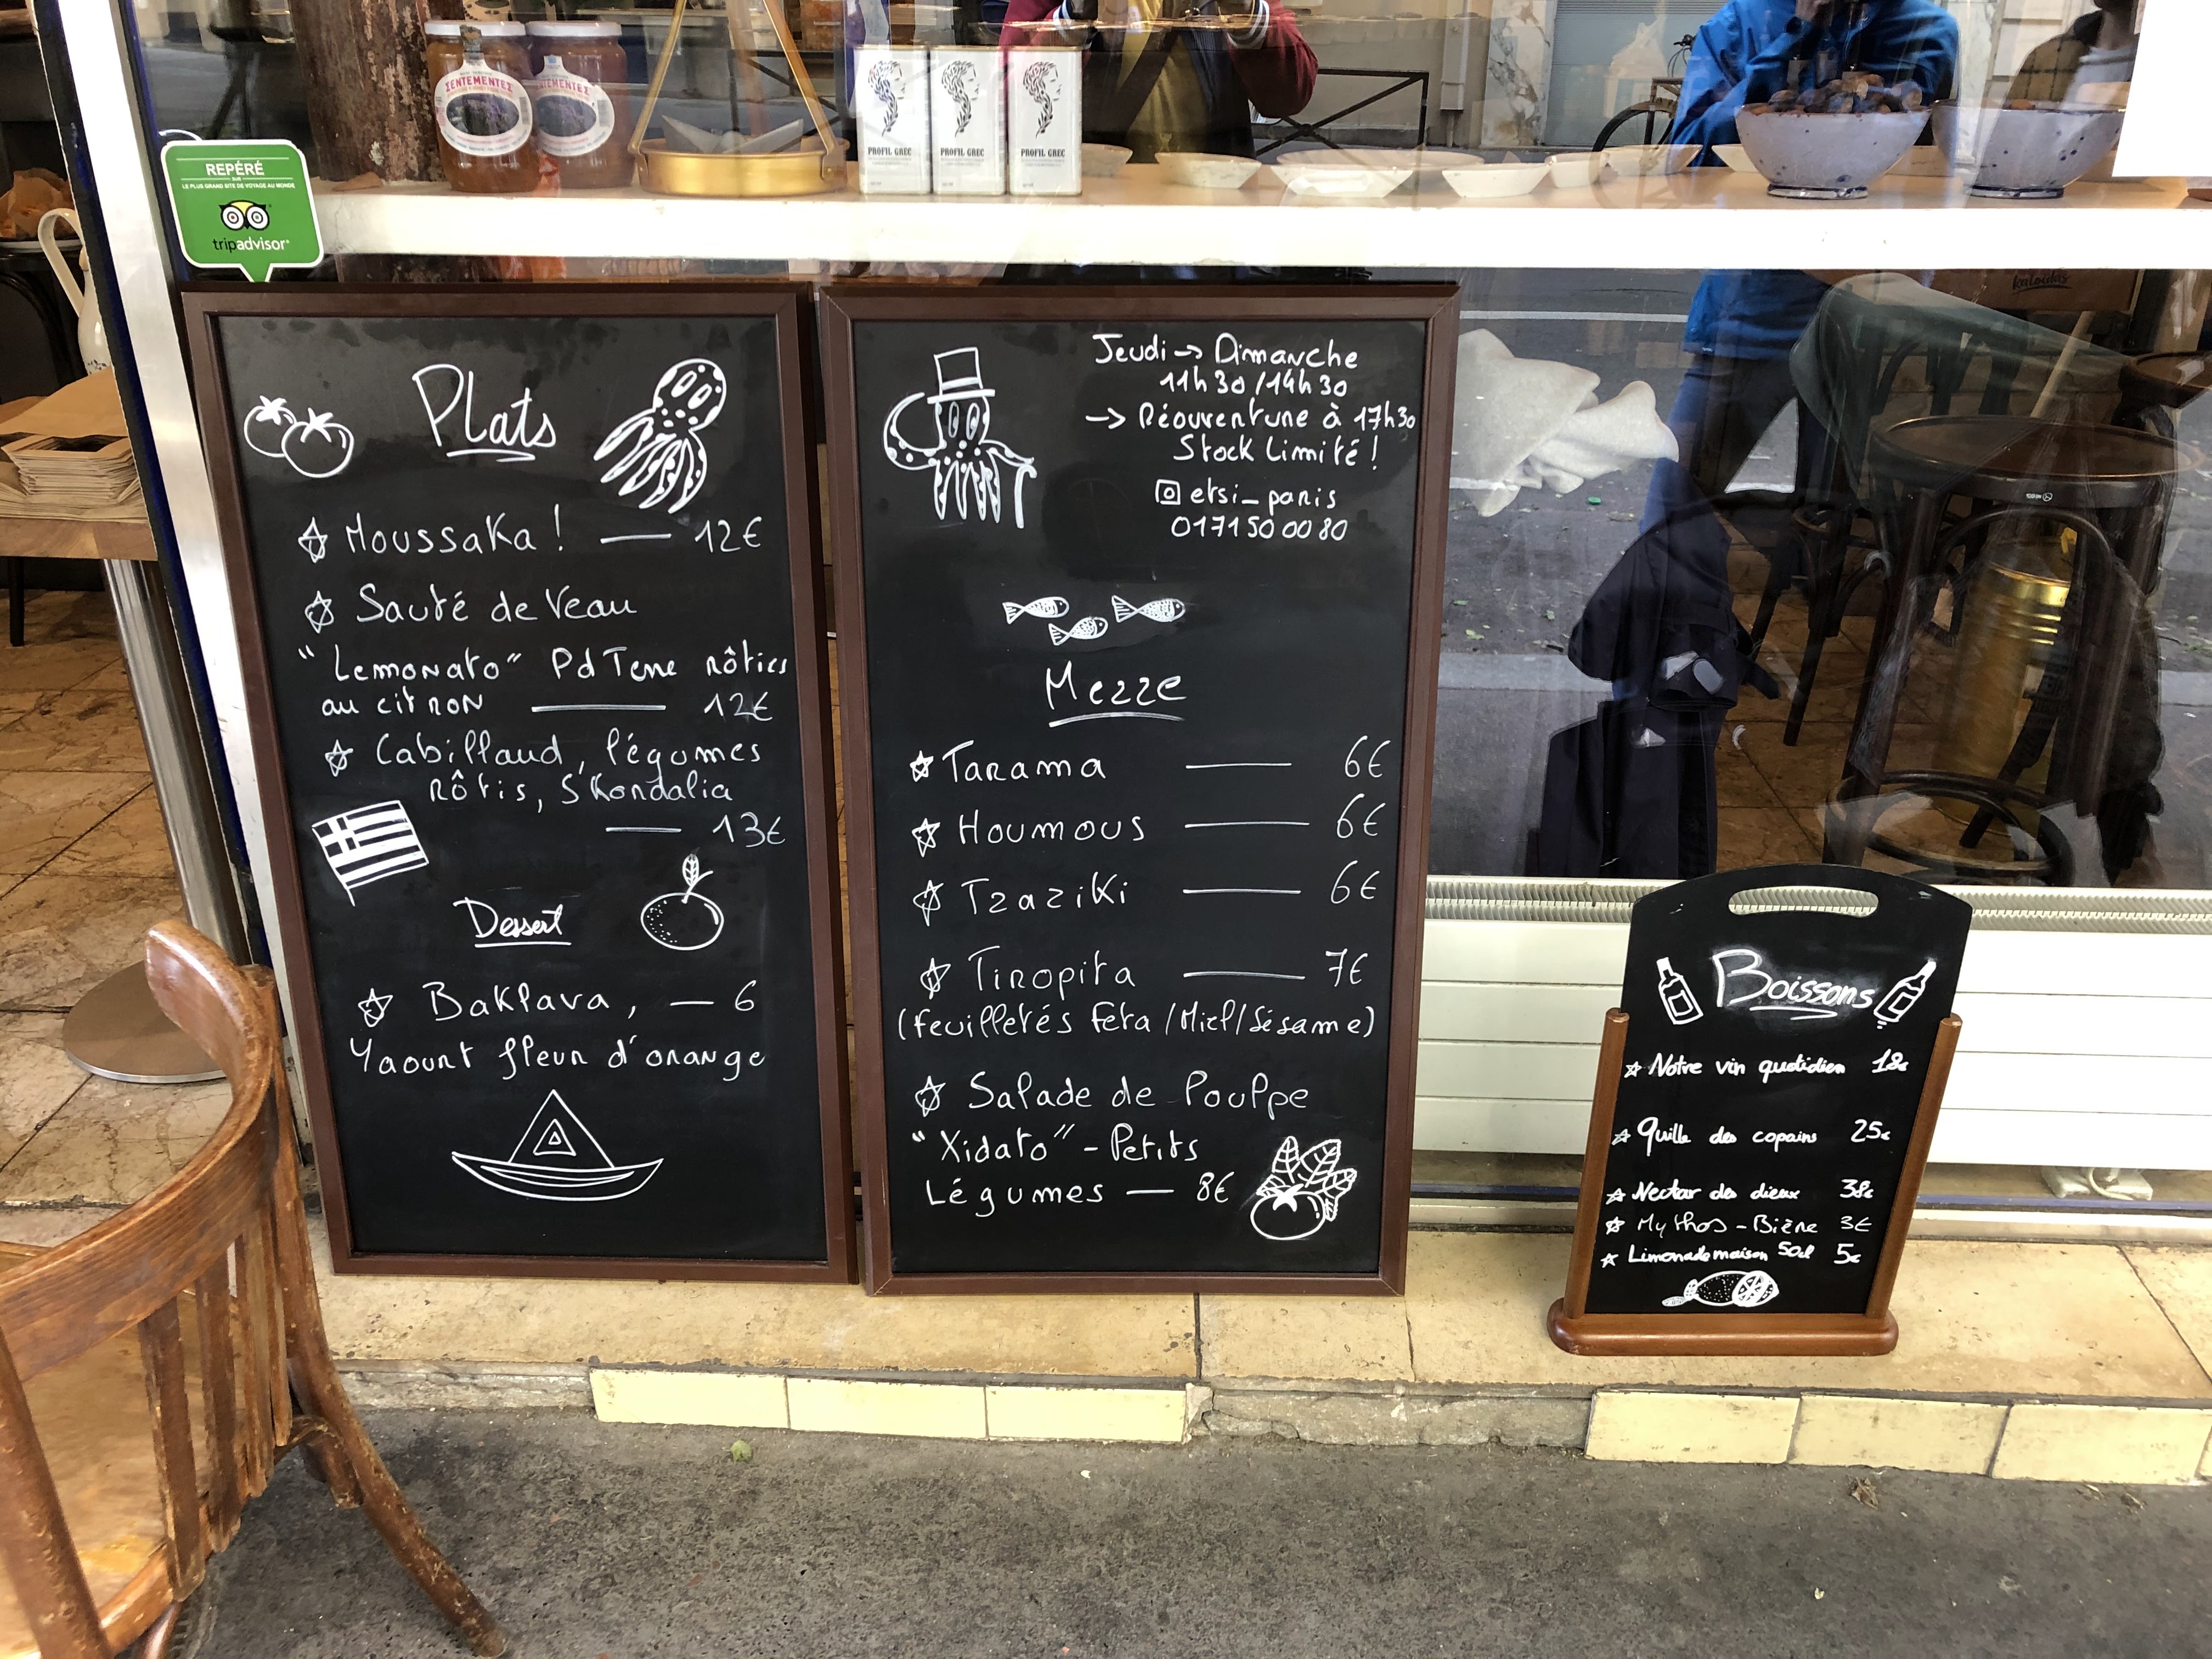 SENTEMENTES
REPÉRÉ
SUR
LE PLUS GRAND SITE DE VOYAGE AU MONDE
tripadvisor
PROFIL GREC
PROFIL GREC
PROFIL GREC
kaloidas
Plats
Moussaka ! — 12€
Sauté de Veau
"Lemonato" Pd Terre rôties
au citron — 12€
Cabillaud, légumes
rôtis, S'Kondalia
— 13€
Dessert
Baklava, — 6
Yaourt fleur d'orange
Jeudi → Dimanche
11h30/14h30
→ Réouverture à 17h30
Stock Limité !
etsi_paris
0171500080
Mezze
Tarama — 6€
Houmous — 6€
Tzaziki — 6€
Tiropita — 7€
(feuilletés Feta/Miel/Sésame)
Salade de Poulpe
"Xidato" - Petits
Légumes — 8€
Boissons
Notre vin quotidien 18€
Quille des copains 25€
Nectar des dieux 38€
Mythos - Bière 3€
Limonade maison 50cl 5€